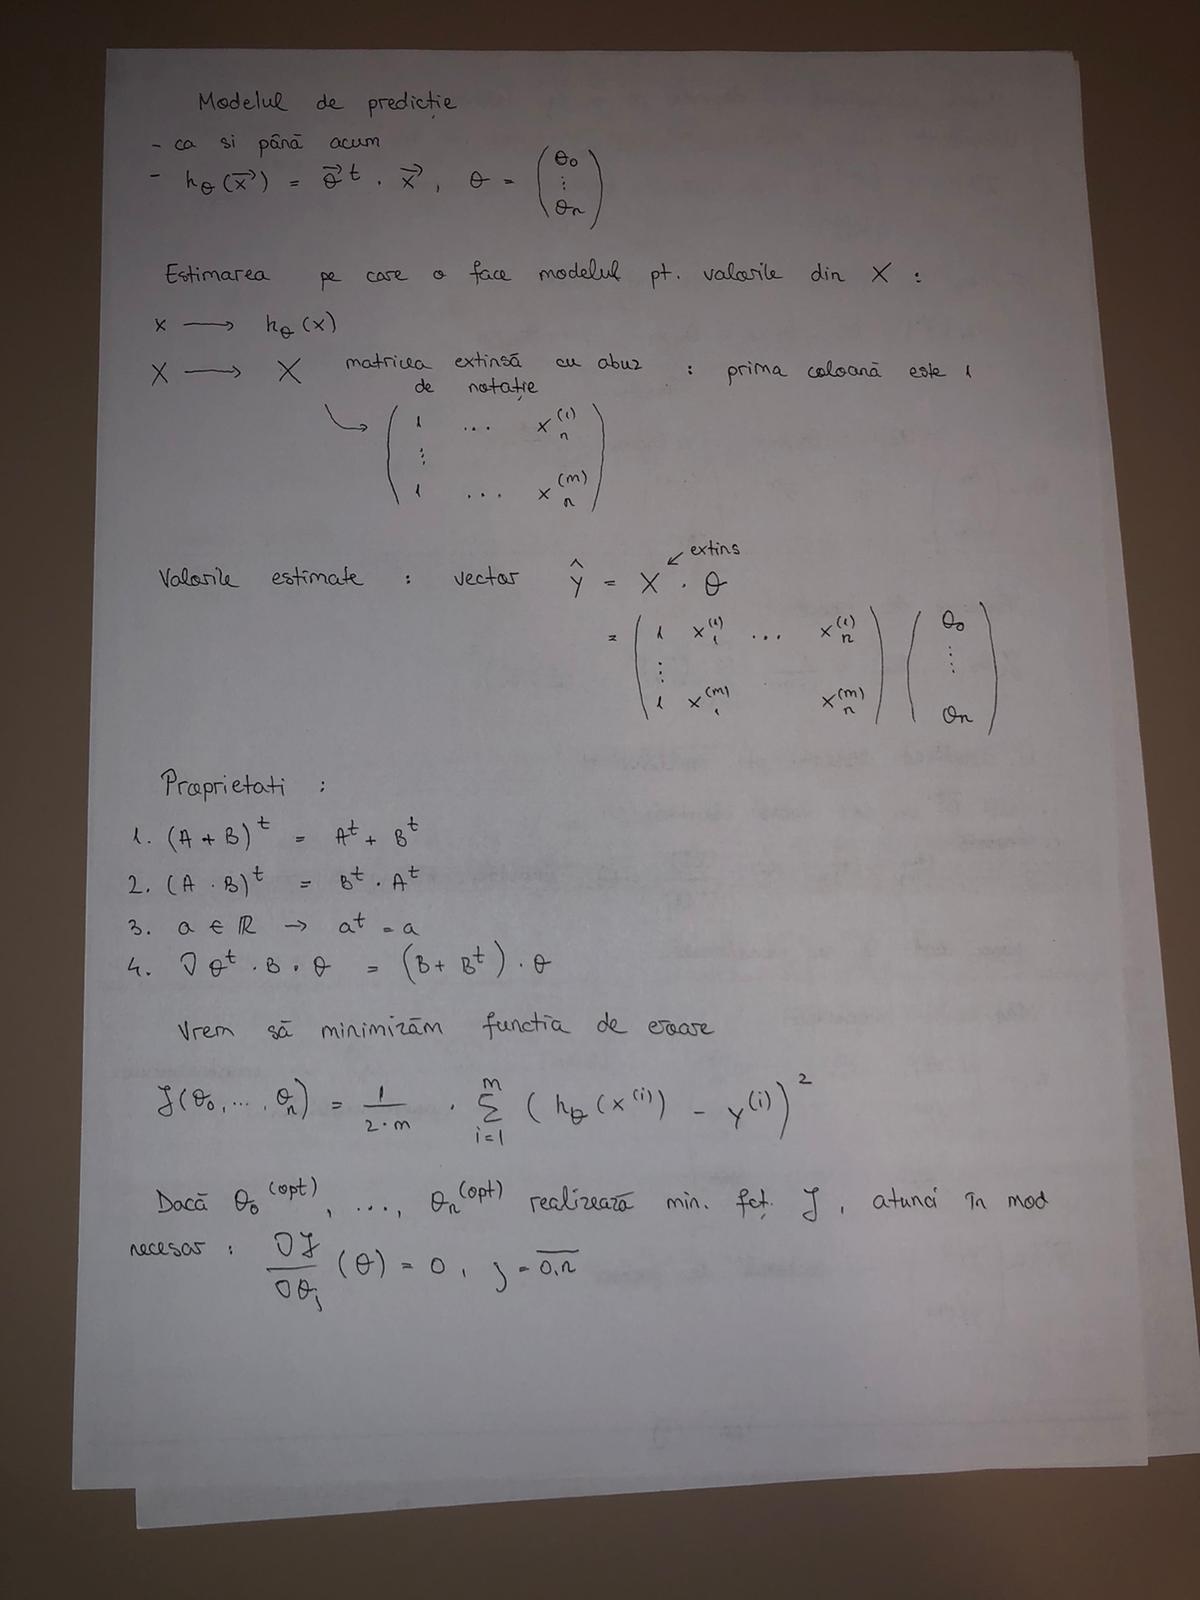 Modelul de predicție
- ca si până acum
- hθ(x⃗) = θ⃗ᵗ · x⃗, θ = (θ₀ ⋮ θₙ)
Estimarea pe care o face modelul pt. valorile din X :
x → hθ(x)
X → X matricea extinsă cu abuz : prima coloană este 1
de notație
( 1 ... xₙ⁽¹⁾
⋮
1 ... xₙ⁽ᵐ⁾ )
↙ extins
Valorile estimate : vector ŷ = X · θ
= ( 1 x₁⁽¹⁾ ... xₙ⁽¹⁾ ) ( θ₀
⋮ ⋮
1 x₁⁽ᵐ⁾ xₙ⁽ᵐ⁾ ) θₙ )
Proprietati :
1. (A + B)ᵗ = Aᵗ + Bᵗ
2. (A · B)ᵗ = Bᵗ · Aᵗ
3. a ∈ ℝ → aᵗ = a
4. ∇ θᵗ · B · θ = (B + Bᵗ) · θ
Vrem să minimizăm functia de eroare
J(θ₀, ..., θₙ) = 1/(2·m) · Σᵢ₌₁ᵐ (hθ(x⁽ⁱ⁾) - y⁽ⁱ⁾)²
Dacă θ₀⁽ᵒᵖᵗ⁾, ..., θₙ⁽ᵒᵖᵗ⁾ realizează min. fcț. J, atunci în mod
necesar : ∂J/∂θⱼ (θ) = 0, j = 0,n̅